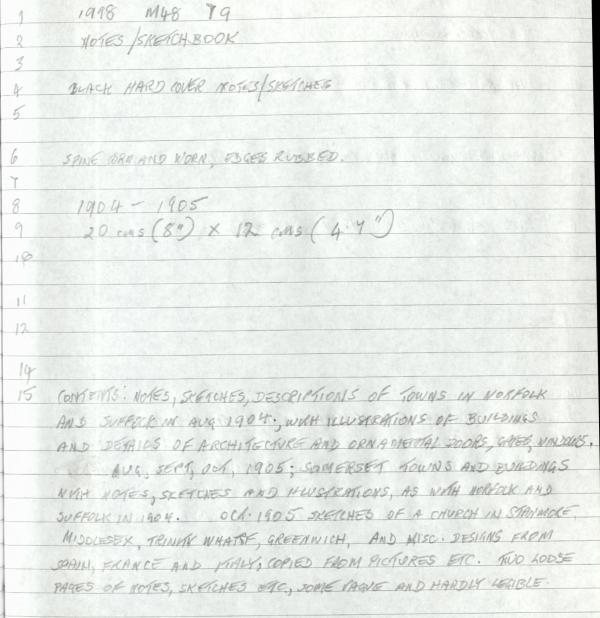 1 1998 M48 T9
2 NOTES/SKETCHBOOK
3
4 BLACK HARD COVER NOTES/SKETCHES
5
6 SPINE TORN AND WORN, EDGES RUBBED.
7
8 1904 - 1905
9 20 cms (8") X 12 cms (4.7")
10
11
12
14
15 CONTENTS: NOTES, SKETCHES, DESCRIPTIONS OF TOWNS IN NORFOLK
AND SUFFOLK IN AUG 1904., WITH ILLUSTRATIONS OF BUILDINGS
AND DETAILS OF ARCHITECTURE AND ORNAMENTAL DOORS, GATES, WINDOWS.
AUG, SEPT, OCT, 1905; SOMERSET TOWNS AND BUILDINGS
WITH NOTES, SKETCHES AND ILLUSTRATIONS, AS WITH NORFOLK AND
SUFFOLK IN 1904. OCT. 1905 SKETCHES OF A CHURCH IN STANMORE,
MIDDLESEX, TRINITY WHARF, GREENWICH, AND MISC. DESIGNS FROM
SPAIN, FRANCE AND ITALY; COPIED FROM PICTURES ETC. TWO LOOSE
PAGES OF NOTES, SKETCHES ETC, SOME VAGUE AND HARDLY LEGIBLE.